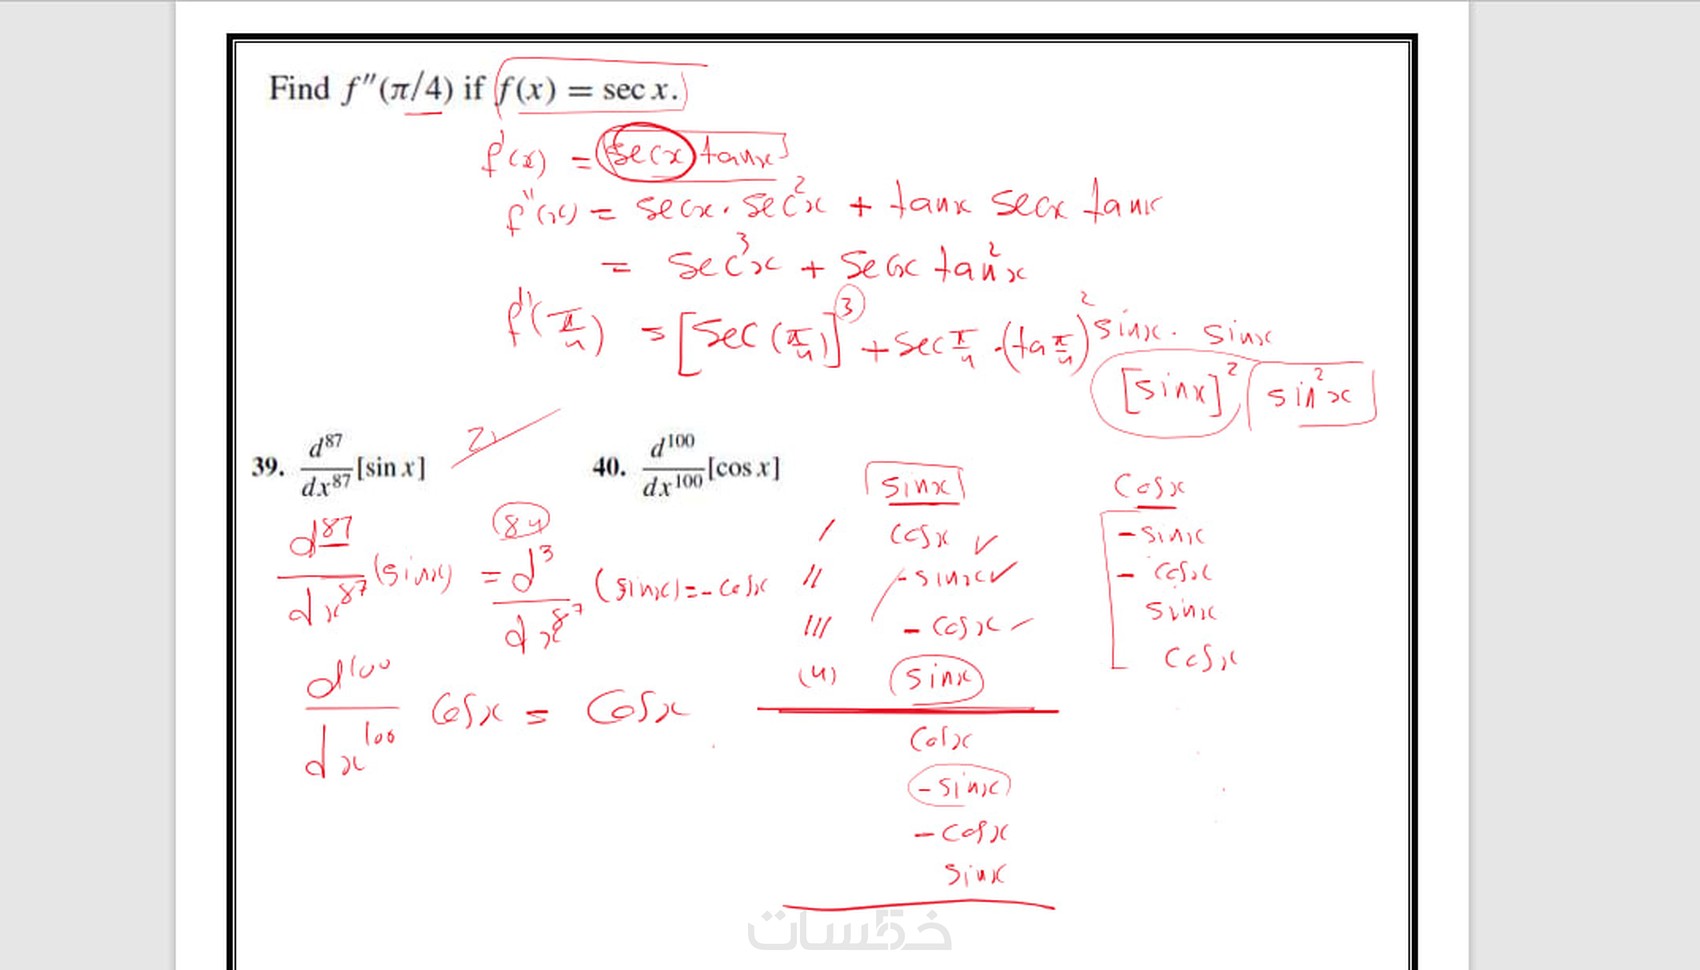 Find f''(π/4) if f(x) = sec x.
f'(x) = secx tanx
f''(x) = secx . sec²x + tanx secx tanx
= sec³x + secx tan²x
f''(π/4) = [sec(π/4)]³ + sec π/4 . (tan π/4)²
sinx . sinx
[sinx]² sin²x
39. d⁸⁷/dx⁸⁷ [sin x]
40. d¹⁰⁰/dx¹⁰⁰ [cos x]
84
d⁸⁷/dx⁸⁷ (sinx) = d³/dx⁸⁷ (sinx) = -cosx
d¹⁰⁰/dx¹⁰⁰ cosx = cosx
sinx
/ cosx ✓
// -sinx ✓
/// -cosx
(4) sinx
cosx
-sinx
-cosx
sinx
cosx
-sinx
-cosx
sinx
cosx
خمسات